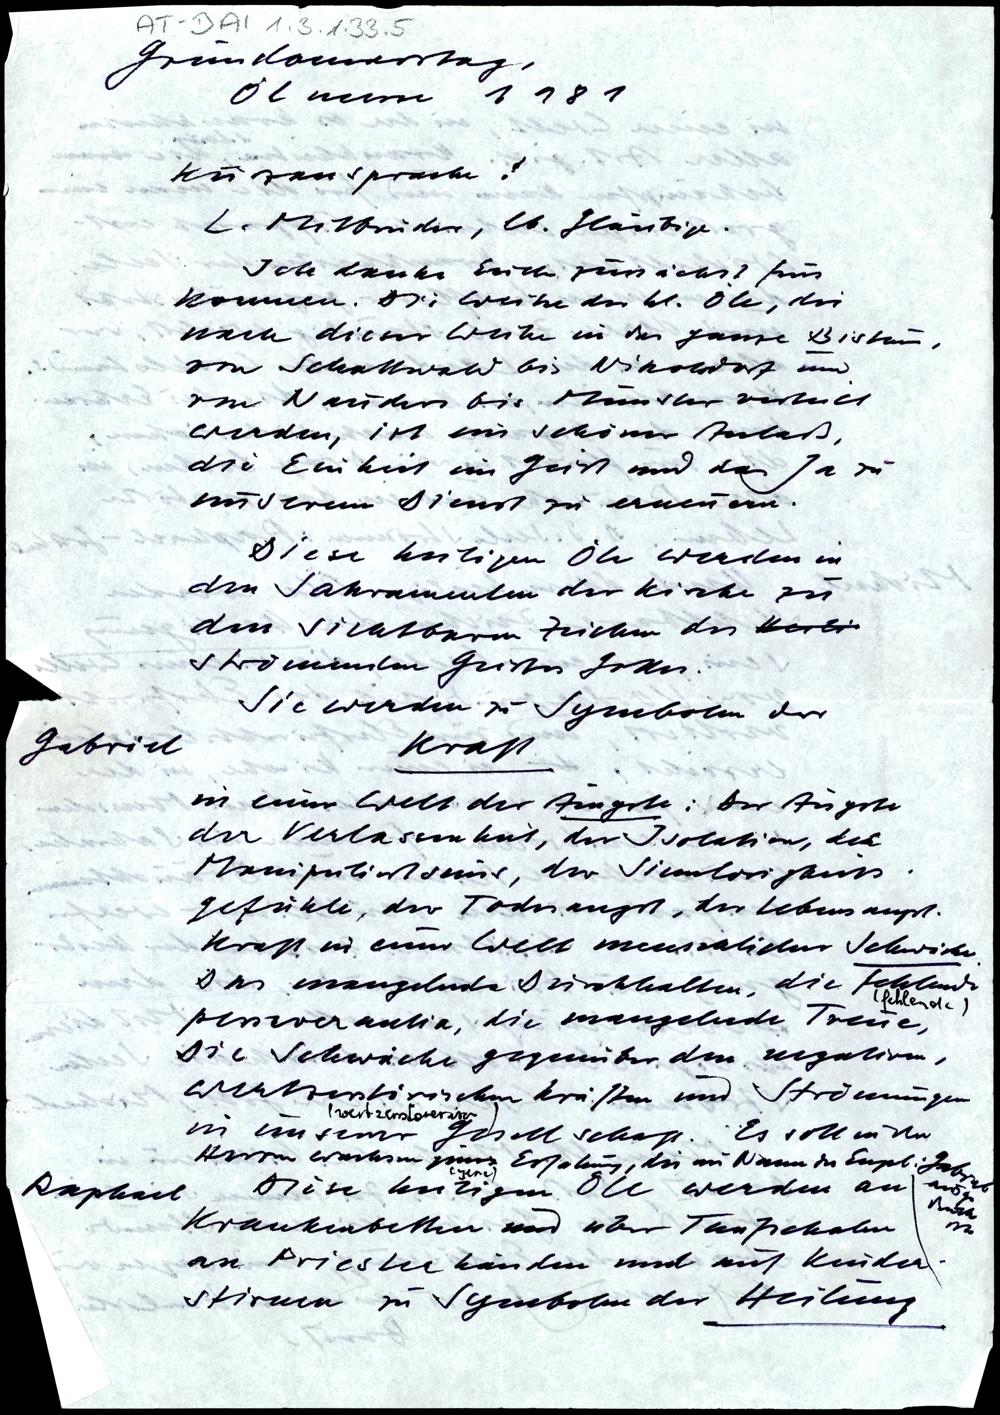 AT-DAI 1.3.1.33.5
Gründonnerstag,
Ölmesse 1981
Kurzansprache!
L. Mitbrüder, lb. Gläubige.
Ich danke Euch zunächst fürs
Kommen. Die Weihe der hl. Öle, die
nach dieser Weihe in das ganze Bistum,
von Schattwald bis Nikolsdorf und
von Nauders bis Münster verteilt
werden, ist ein schöner Anlaß,
die Einheit im Geist und das Ja zu
unserem Dienst zu erneuern.
Diese heiligen Öle werden in
den Sakramenten der Kirche zu
den sichtbaren Zeichen des Heili
strömenden Geistes Gottes.
Sie werden zu Symbolen der
Gabriel Kraft
in einer Welt der Ängste: Der Ängste
der Verlassenheit, der Isolation, des
Manipuliertseins, der Sinnlosigkeits-
gefühle, der Todesangst, der Lebensangst.
Kraft in einer Welt menschlicher Schwäche.
Das mangelnde Durchhalten, die fehlende
(fehlende)
perseverantia, die mangelnde Treue,
Die Schwäche gegenüber den negativen,
wertzerstörischen Kräften und Strömungen
(wertzerstörerischen)
in unserer Gesellschaft. Es soll in den
Herzen wachsen jene Erfahrung, die im Namen des Engels Gabriel
(jene)
ausge-
drückt
ist
Raphael Diese heiligen Öle werden an
Krankenbetten und über Taufschalen
an Priesterhänden und auf Kinder-
stirnen zu Symbolen der Heilung